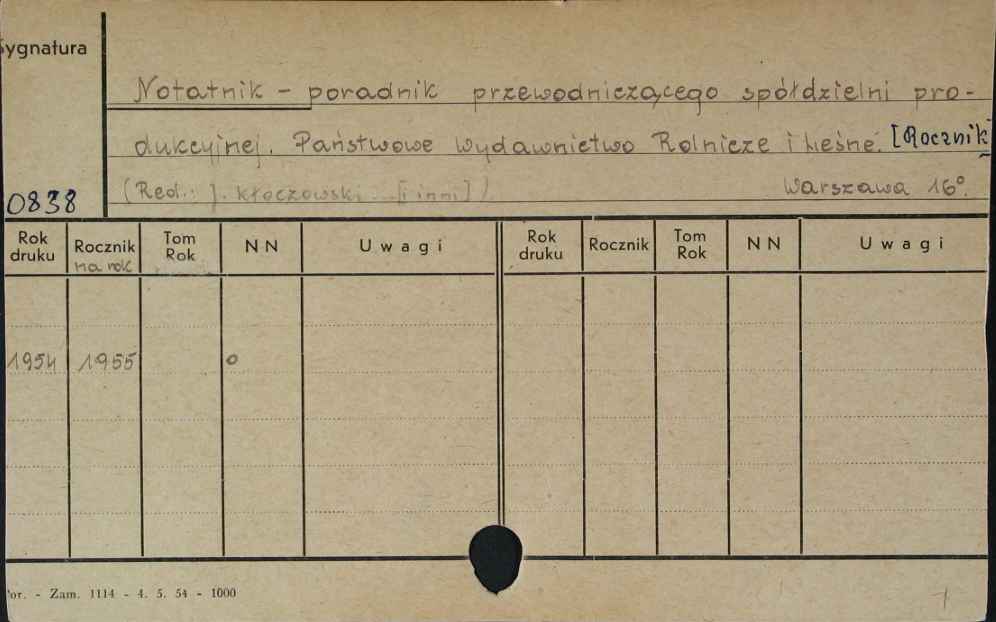 Sygnatura
Notatnik - poradnik przewodniczącego spółdzielni pro-
dukcyjnej. Państwowe Wydawnictwo Rolnicze i Leśne. [Rocznik]
0838
(Red.: J. Kłoczowski ... [i inni]). Warszawa 16°.
Rok druku Rocznik na rok Tom Rok NN Uwagi Rok druku Rocznik Tom Rok NN Uwagi
1954 1955 o
or. - Zam. 1114 - 4. 5. 54 - 1000